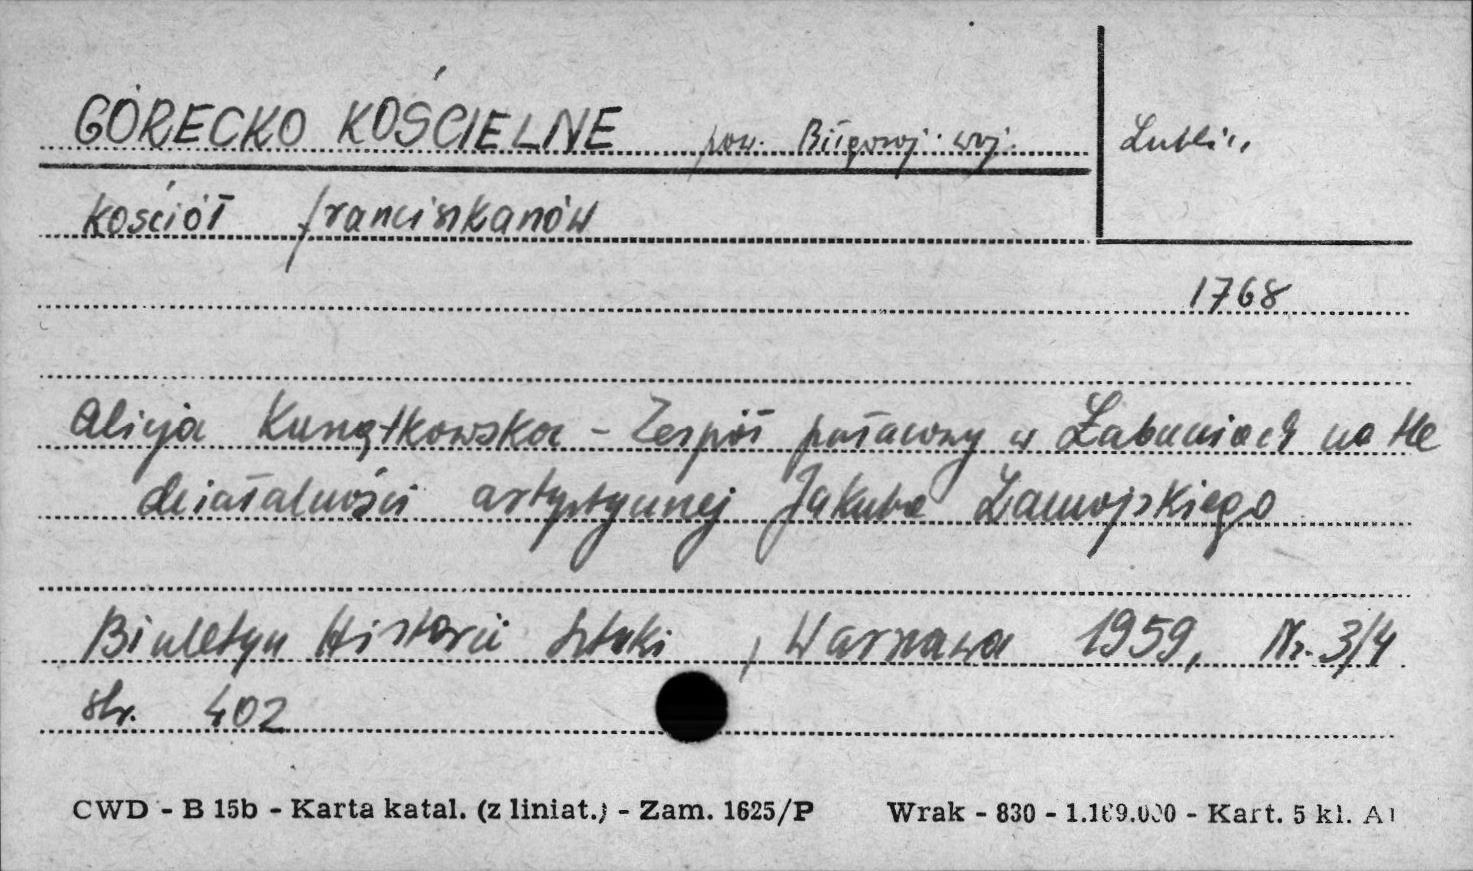 GÓRECKO KOŚCIELNE pow. Biłgoraj woj. Lublin
Kościół franciszkanów
1768
Alicja Kurzątkowska - Zespół pałacowy w Łabuniach na tle
działalności artystycznej Jakuba Zamojskiego
Biuletyn Historii Sztuki, Warszawa 1959, Nr. 3/4
str. 402
CWD - B 15b - Karta katal. (z liniat.) - Zam. 1625/P Wrak - 830 - 1.169.000 - Kart. 5 kl. A1